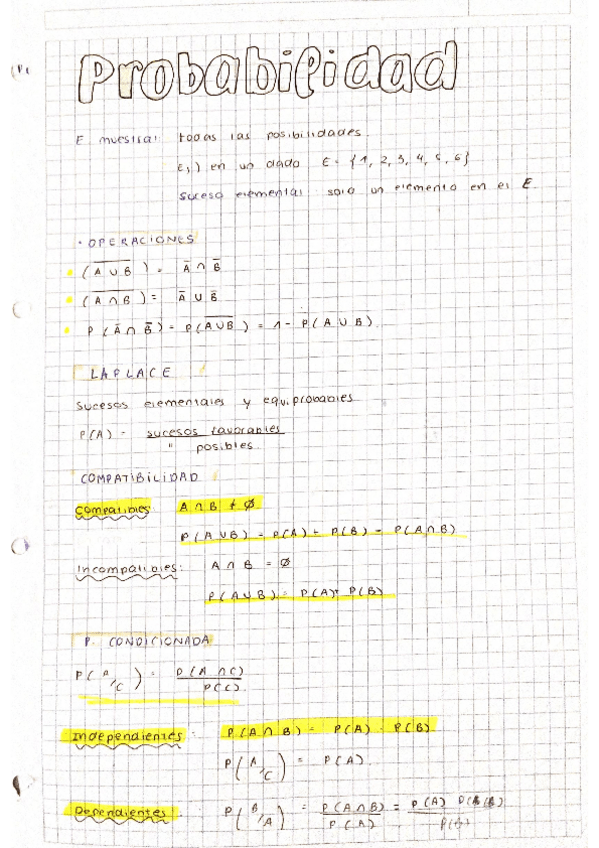 Probabilidad
E muestral: todas las posibilidades.
Ej) en un dado E = {1, 2, 3, 4, 5, 6}
Suceso elemental: solo un elemento en el E.
· OPERACIONES
(A̅ ̅∪̅ ̅B̅) = A̅ ∩ B̅
(A̅ ̅∩̅ ̅B̅) = A̅ ∪ B̅
P(A̅ ∩ B̅) = P(A̅ ̅∪̅ ̅B̅) = 1 - P(A ∪ B).
LAPLACE
Sucesos elementales y equiprobables
P(A) = sucesos favorables
" posibles
COMPATIBILIDAD
Compatibles: A ∩ B ≠ ∅
P(A ∪ B) = P(A) + P(B) - P(A ∩ B)
Incompatibles: A ∩ B = ∅
P(A ∪ B) = P(A) + P(B)
P. CONDICIONADA
P(A/C) = P(A ∩ C)
P(C)
Independientes: P(A ∩ B) = P(A) · P(B)
P(A/C) = P(A).
Dependientes: P(B/A) = P(A ∩ B) = P(A)
P(A) P(B)